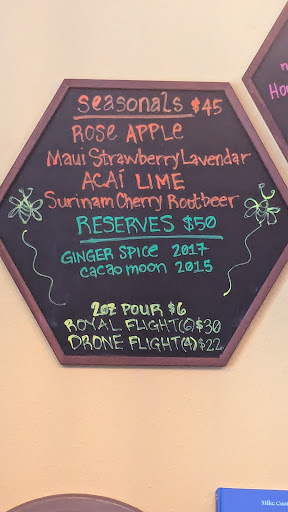 Seasonals $45
Rose Apple
Maui Strawberry Lavendar
Acaí Lime
Surinam Cherry Rootbeer
Reserves $50
Ginger Spice 2017
Cacao moon 2015
2oz Pour $6
Royal Flight (6) $30
Drone Flight (4) $22